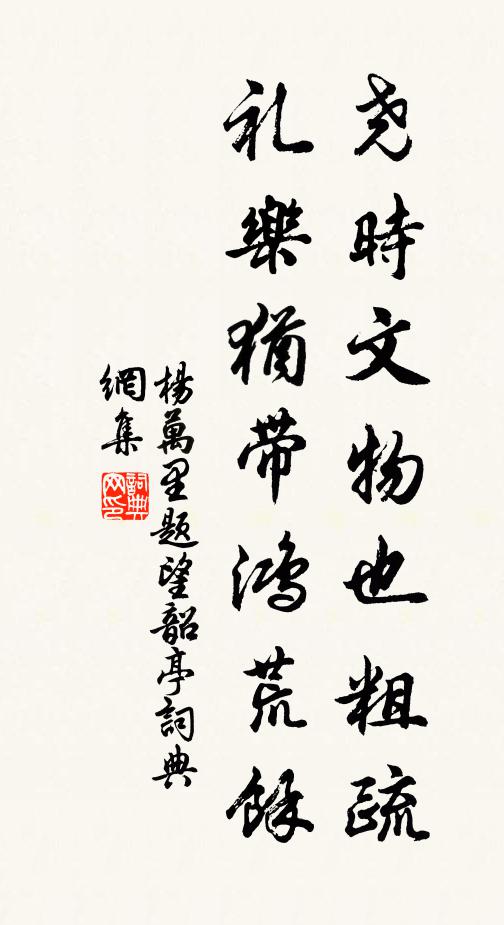 尧時文物也粗疏
礼樂猶带鴻荒餘
楊萬里题望韶亭詞典
網集
詞典
网印